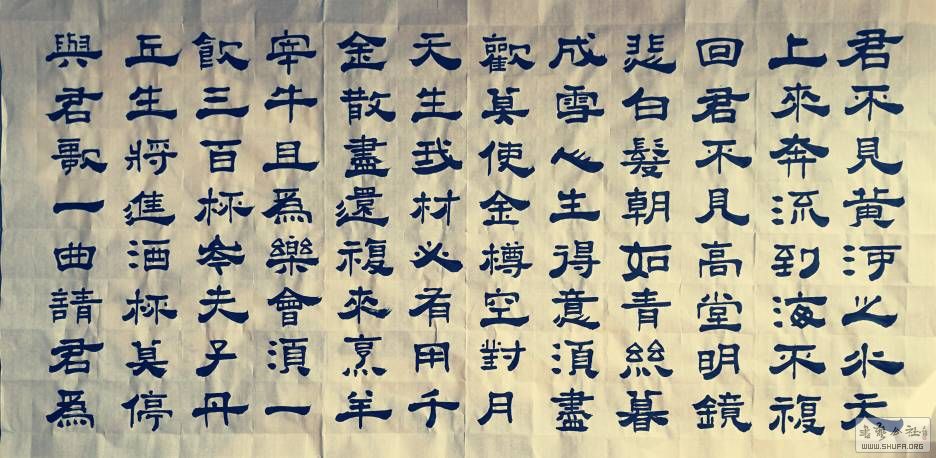 君不見黃河之水天
上來奔流到海不複
回君不見高堂明鏡
悲白髮朝如青絲暮
成雪人生得意須盡
歡莫使金樽空對月
天生我材必有用千
金散盡還複來烹羊
宰牛且爲樂會須一
飲三百杯岑夫子丹
丘生將進酒杯莫停
與君歌一曲請君爲
WWW.SHUFA.ORG